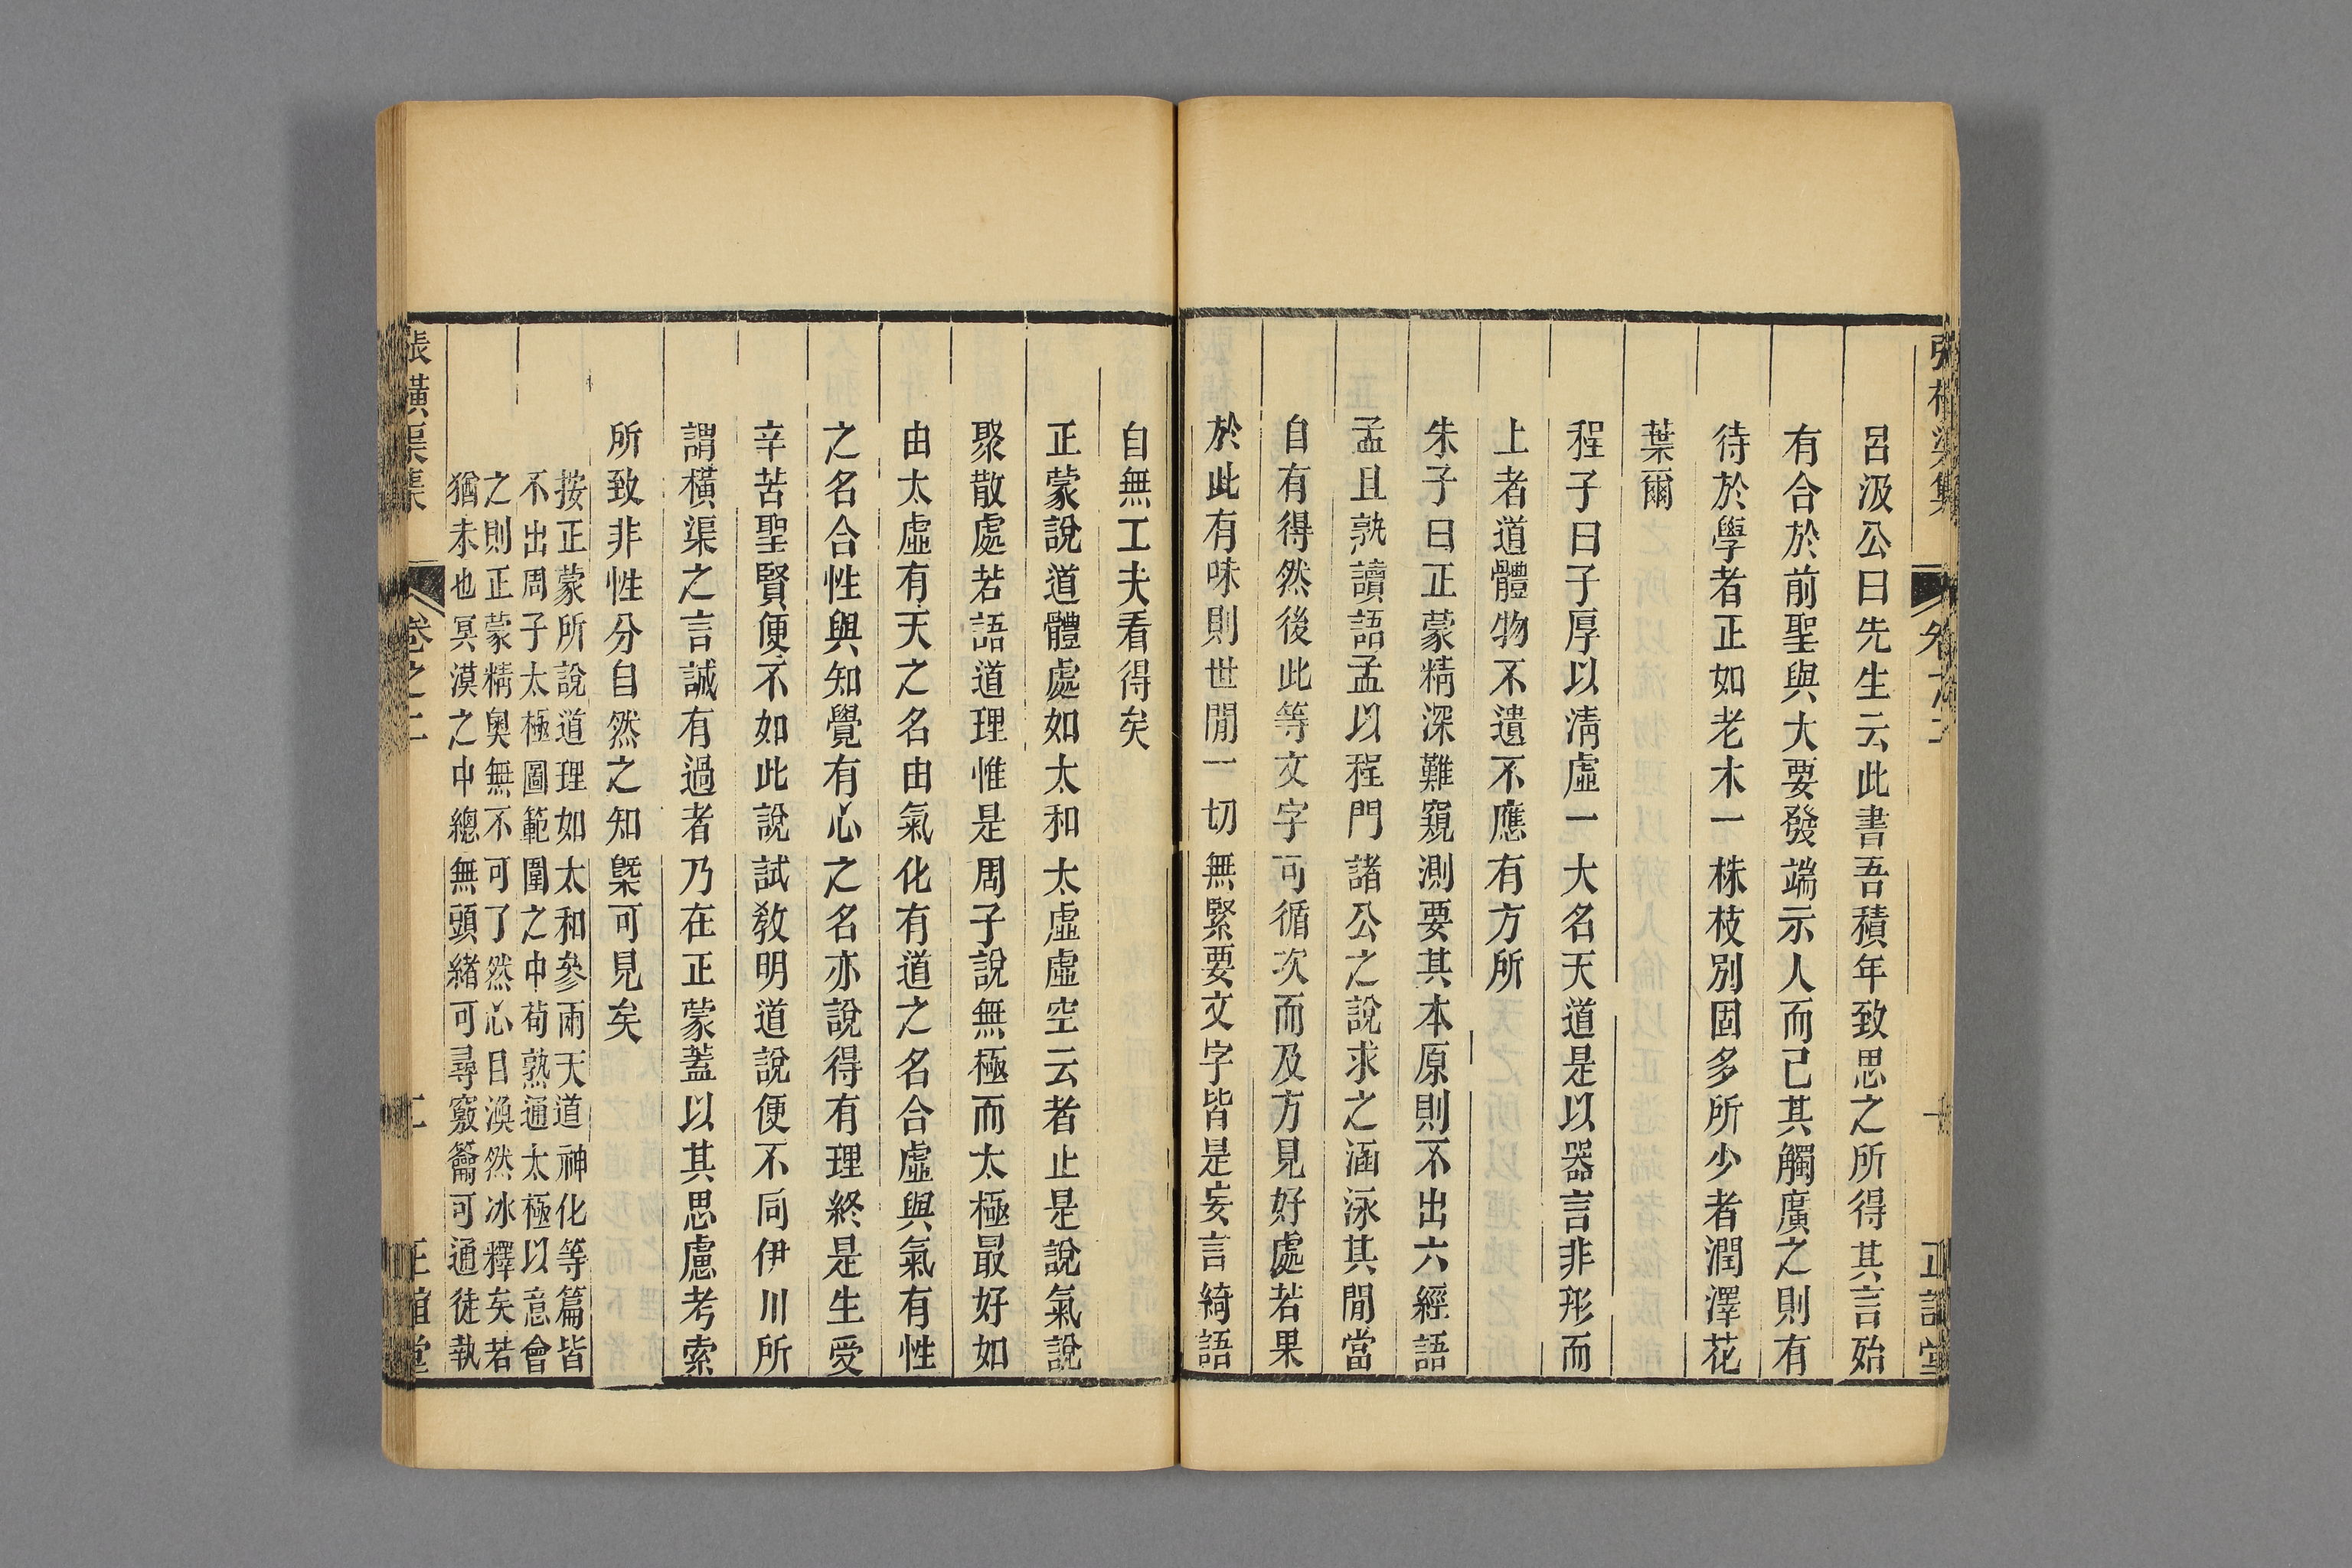 呂汲公曰先生云此書吾積年致思之所得其言殆
有合於前聖與大要發端示人而已其觸廣之則有
待於學者正如老木一株枝別固多所少者潤澤花
葉爾
程子曰子厚以淸虛一大名天道是以器言非形而
上者道體物不遺不應有方所
朱子曰正蒙精深難窺測要其本原則不出六經語
孟且熟讀語孟以程門諸公之說求之涵泳其閒當
自有得然後此等文字可循次而及方見好處若果
於此有味則世閒一切無緊要文字皆是妄言綺語
自無工夫看得矣
正蒙說道體處如太和太虛虛空云者止是說氣說
聚散處若語道理惟是周子說無極而太極最好如
由太虛有天之名由氣化有道之名合虛與氣有性
之名合性與知覺有心之名亦說得有理終是生受
辛苦聖賢便不如此說試敎明道說便不同伊川所
謂橫渠之言誠有過者乃在正蒙蓋以其思慮考索
所致非性分自然之知槩可見矣
按正蒙所說道理如太和參兩天道神化等篇皆
不出周子太極圖範圍之中苟熟通太極以意會
之則正蒙精奧無不可了然心目渙然冰釋矣若
猶未也冥漠之中總無頭緒可尋竅籥可通徒執
張橫渠集
卷之二
二
正誼堂